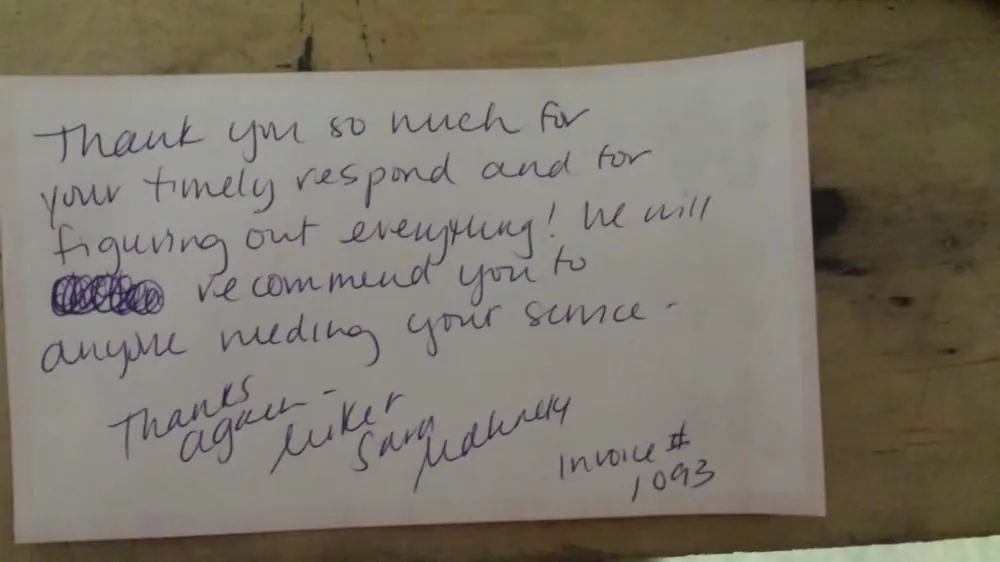 Thank you so much for
your timely respond and for
figuring out everything! We will
recommend you to
anyone needing your service -
Thanks
again -
Mike +
Sara
Invoice #
1093